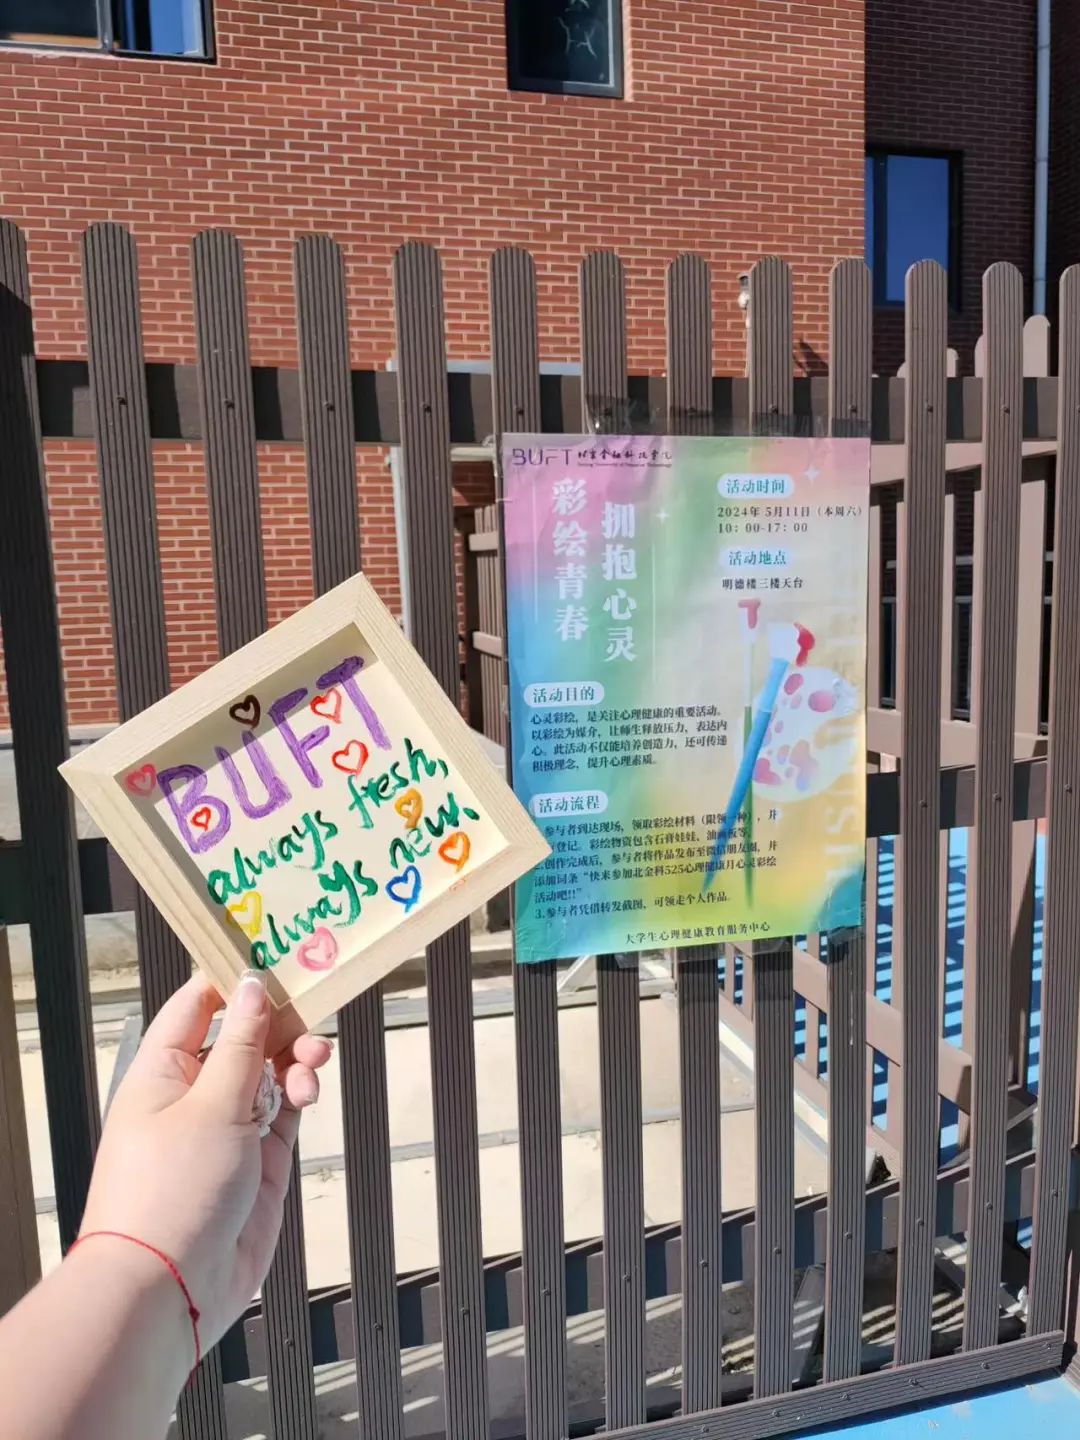 BUFT
always fresh,
always new.
BUFT 北京金融科技学院
彩绘青春
拥抱心灵
活动时间
2024年 5月11日（本周六）
10：00-17：00
活动地点
明德楼三楼天台
活动目的
心灵彩绘，是关注心理健康的重要活动。
以彩绘为媒介，让师生释放压力、表达内
心。此活动不仅能培养创造力，还可传递
积极理念，提升心理素质。
活动流程
参与者到达现场，领取彩绘材料（限领一种），并
登记。彩绘物资包含石膏娃娃、油画板等。
创作完成后，参与者将作品发布至微信朋友圈，并
添加词条“快来参加北金科525心理健康月心灵彩绘
活动吧!!”
3.参与者凭借转发截图，可领走个人作品。
大学生心理健康教育服务中心